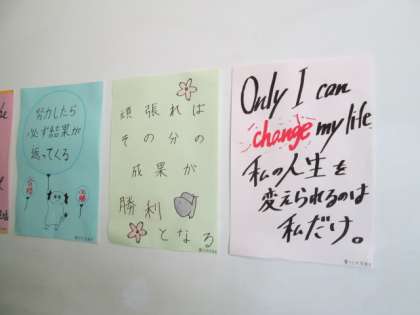 努力したら
必ず結果が
返ってくる
合格
必勝
頑張れば
その分の
成果が
勝利
となる
Only I can
change my life
私の人生を
変えられるのは
私だけ。